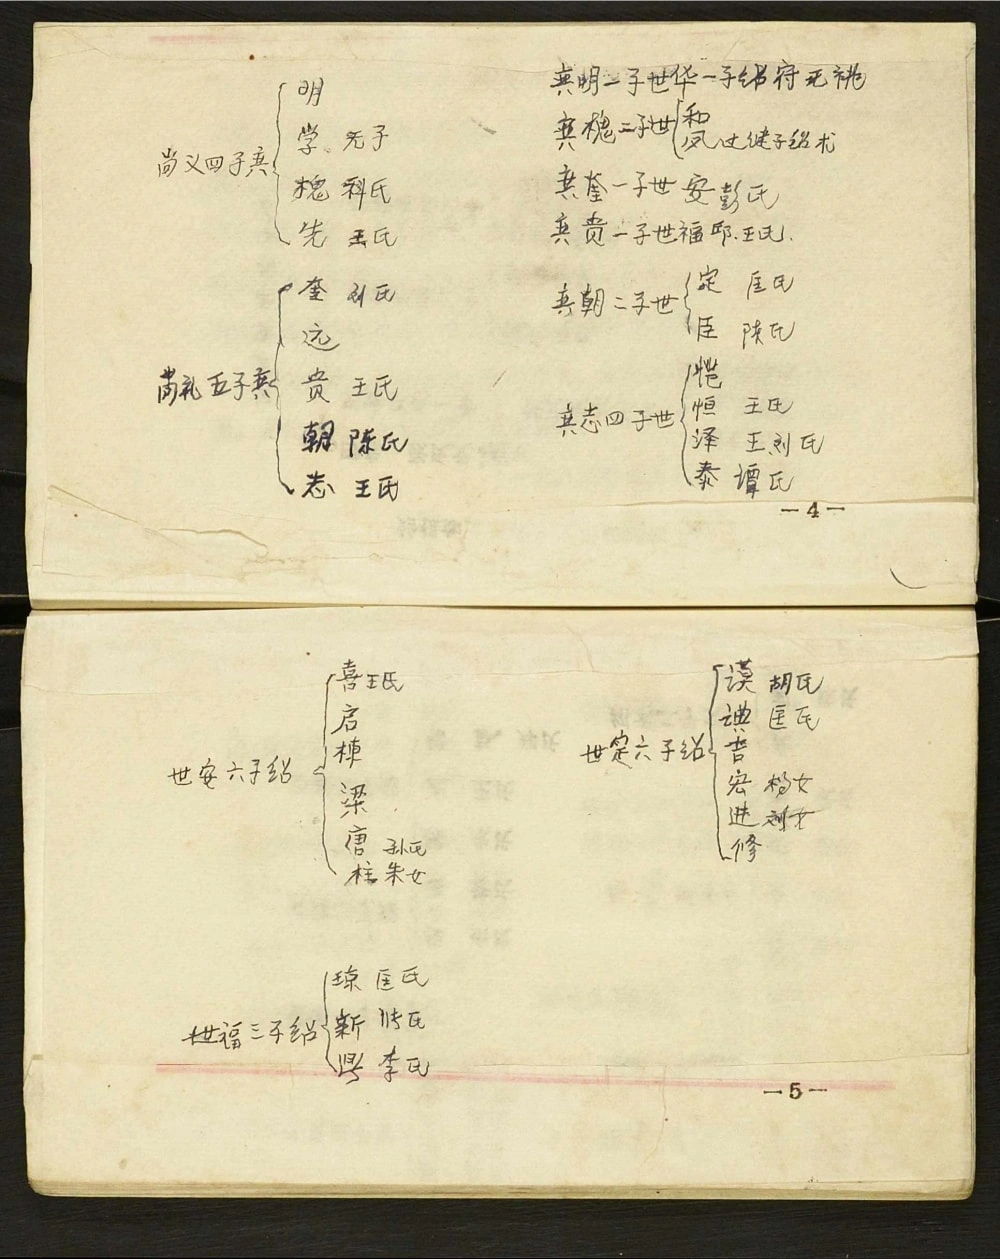 尚义四子兴
明
学 无子
槐 科氏
先 王氏
尚礼五子兴
奎 刘氏
远
贵 王氏
朝 陈氏
志 王氏
兴明一子世华一子绍符无祧
兴槐二子世
和
凤过继子绍术
兴奎一子世安彭氏
兴贵一子世福邱.王氏.
兴朝二子世
定 匡氏
臣 陈氏
兴志四子世
恺
恒 王氏
泽 王刘氏
泰 谭氏
—4—
世安六子绍
喜王氏
启
栋
梁
唐 孙氏
柱 朱女
世福三子绍
琼 匡氏
新 张氏
李氏
世定六子绍
谟 胡氏
典 匡氏
吉
宏 杨女
进 刘女
修
—5—